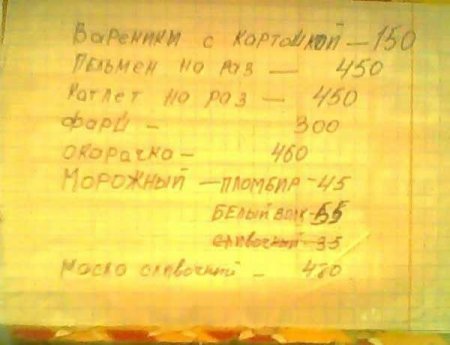 Вареники с картошкой — 150
Пельмен на раз — 450
Катлет на раз — 450
фарш — 300
окорачка — 460
Морожный — пломбир — 45
белый
сливочный — 35
Масло сливочный — 480